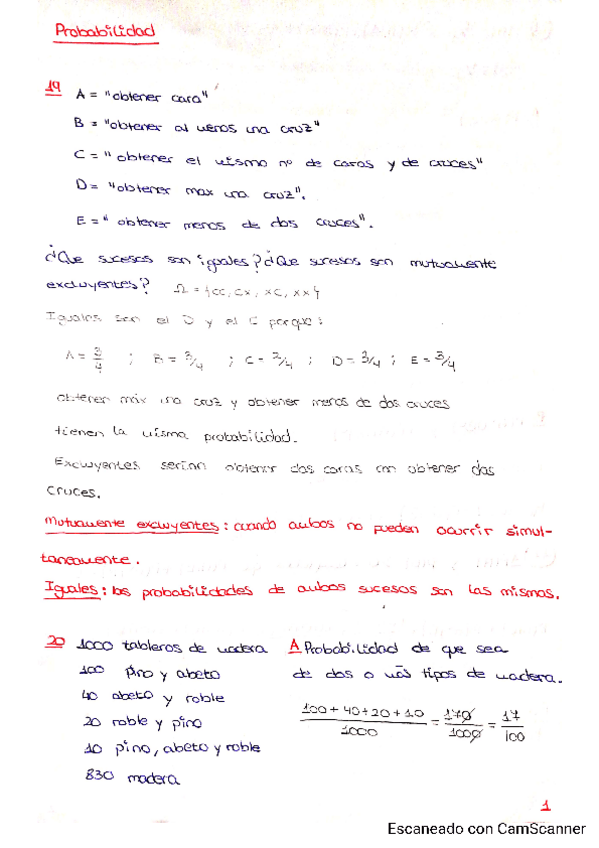 Probabilidad
19 A = "obtener cara"
B = "obtener al menos una cruz"
C = "obtener el mismo nº de caras y de cruces"
D = "obtener max una cruz".
E = "obtener menos de dos cruces".
¿Que sucesos son iguales? ¿Que sucesos son mutuamente
excluyentes? Ω = {CC, CX, XC, XX}
Iguales son el D y el E porque:
A = 3/4 ; B = 3/4 ; C = 3/4 ; D = 3/4 ; E = 3/4
obtener máx una cruz y obtener menos de dos cruces
tienen la misma probabilidad.
Excluyentes serian obtener dos caras con obtener dos
cruces.
Mutuamente excluyentes: cuando ambos no pueden ocurrir simul-
taneamente.
Iguales: las probabilidades de ambos sucesos son las mismas.
20 1000 tableros de madera
100 pino y abeto
40 abeto y roble
20 roble y pino
10 pino, abeto y roble
830 madera
A Probabilidad de que sea
de dos o más tipos de madera.
100 + 40 + 20 + 10 / 1000 = 170 / 1000 = 17 / 100
1
Escaneado con CamScanner